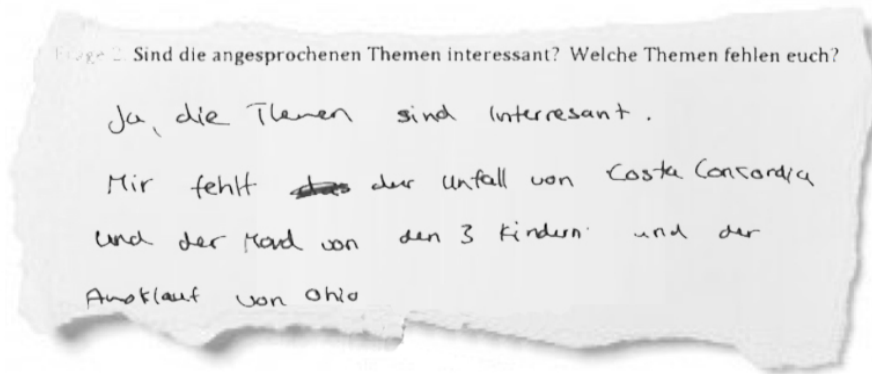 Frage 2 Sind die angesprochenen Themen interessant? Welche Themen fehlen euch?
Ja, die Themen sind Interresant.
Mir fehlt der Unfall von Costa Concordia
und der Mord von den 3 Kindern und der
Amoklauf von Ohio